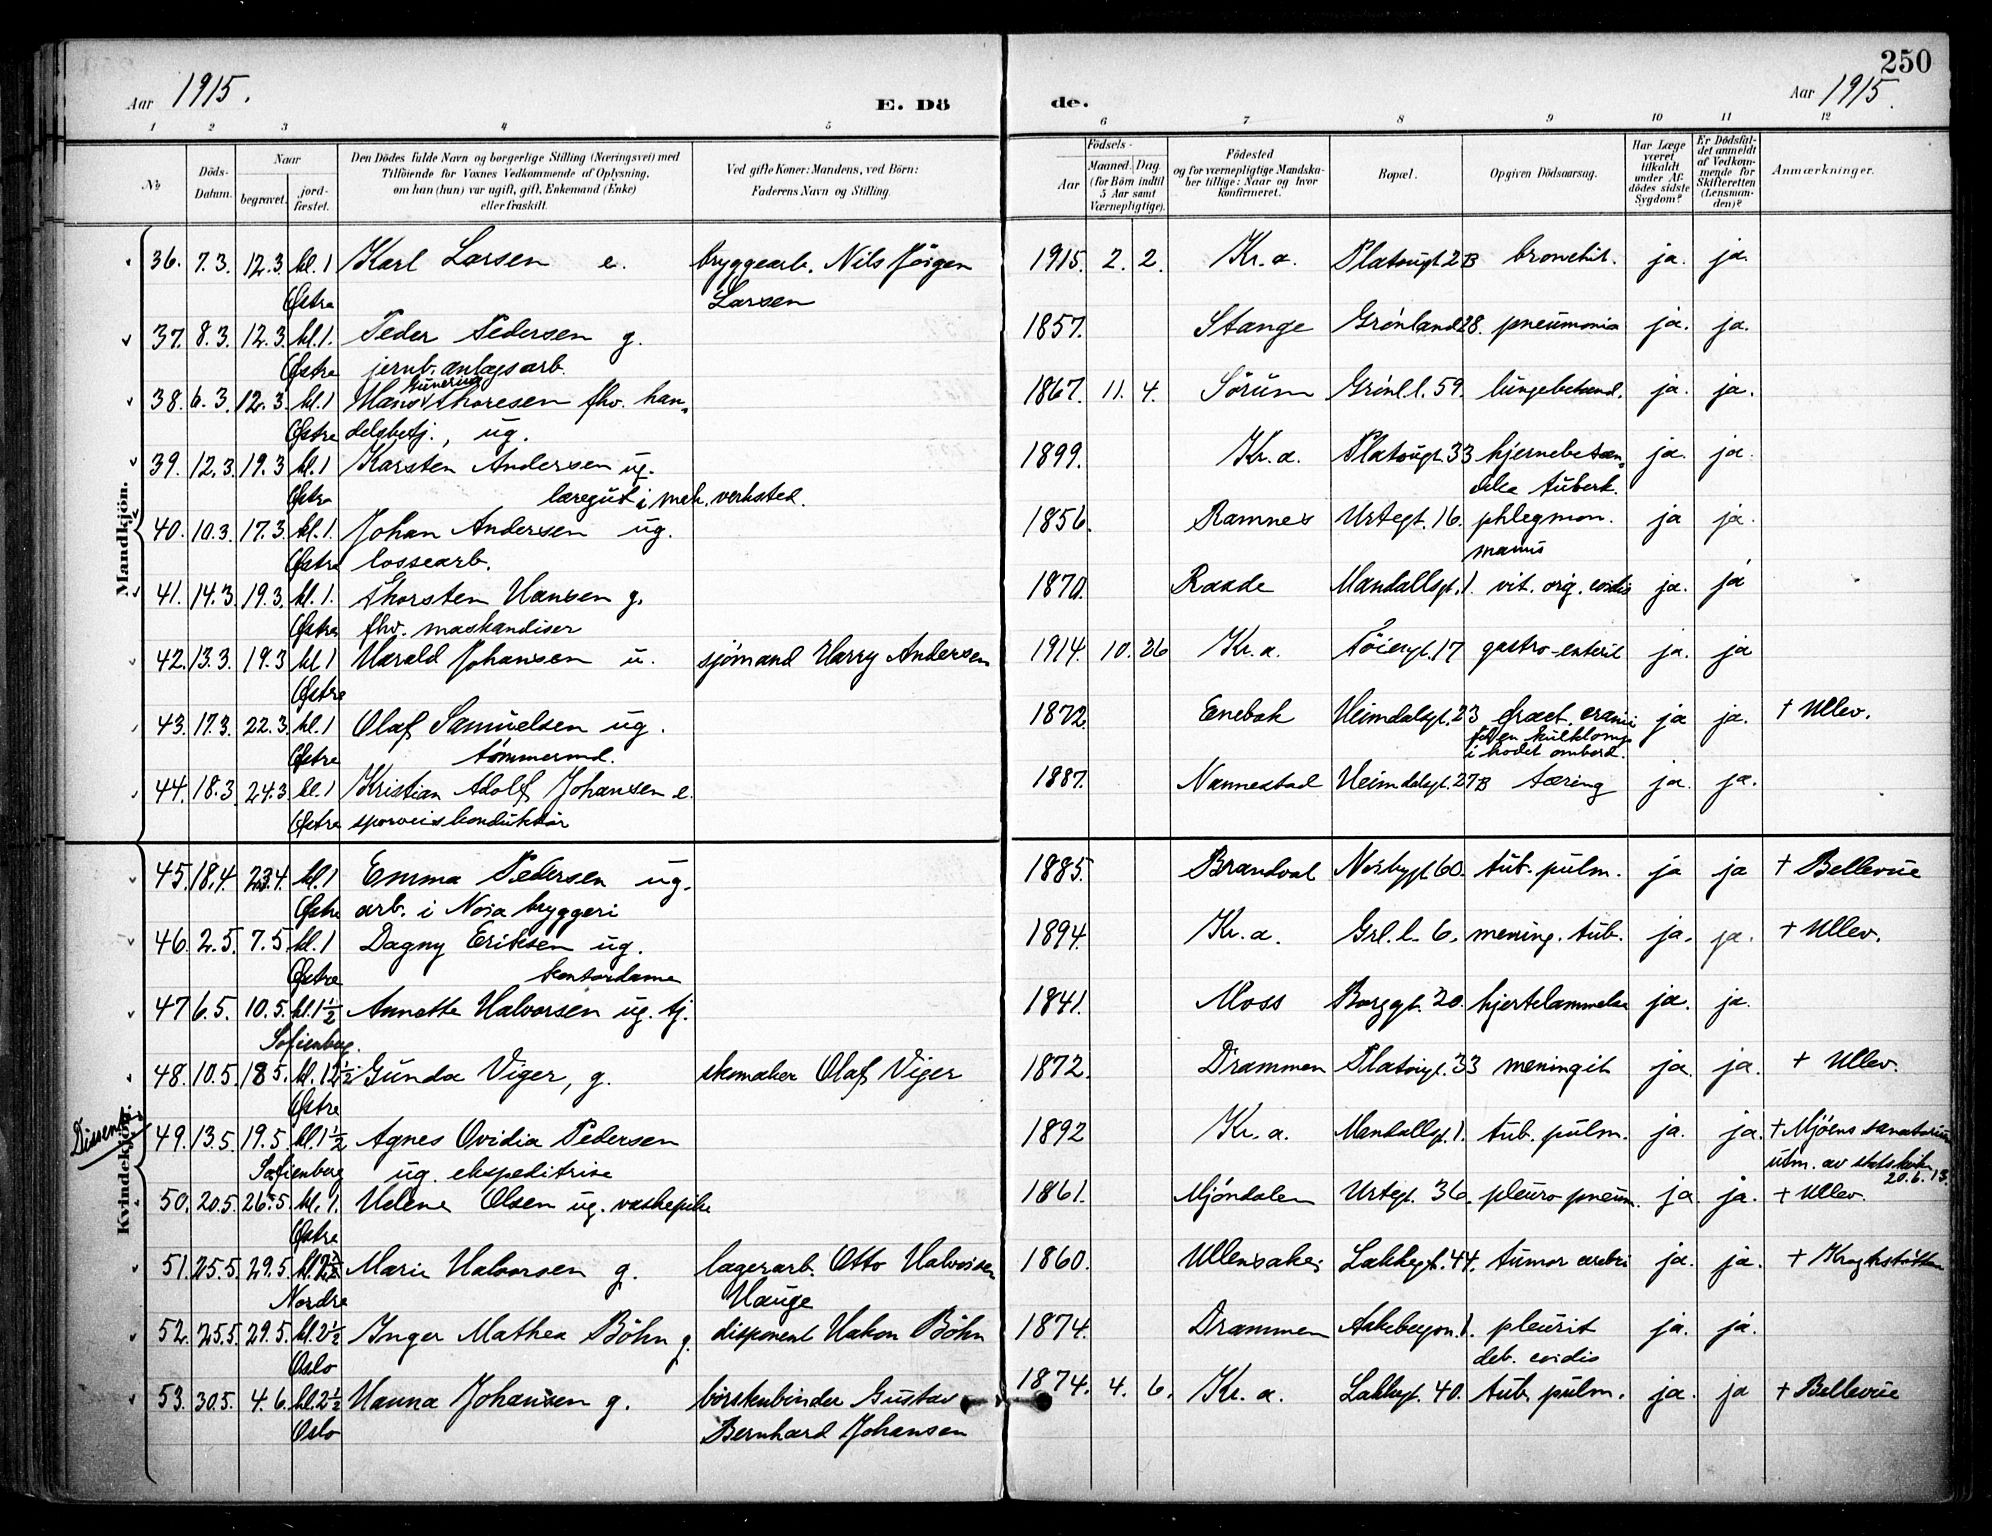 250
Aar 1915.
E. Dö
de.
Aar 1915.
1 2 3 4 5 6 7 8 9 10 11 12
№
Döds-Datum.
Naar
begravet.
jord-fæstet.
Den Dödes fulde Navn og borgerlige Stilling (Næringsvei) med
Tilföiende for Voxnes Vedkommende af Oplysning,
om han (hun) var ugift, gift, Enkemand (Enke)
eller fraskilt.
Ved gifte Koner: Mandens, ved Börn:
Faderens Navn og Stilling.
Födsels-
Aar
Maaned. Dag
(for Börn indtil
5 Aar samt
Værnepligtige).
Födested
og for værnepligtige Mandska-
ber tillige: Naar og hvor
konfirmeret.
Bopæl.
Opgiven Dödsaarsag.
Har Læge
været
tilkaldt
under Af-
dödes sidste
Sygdom?
Er Dödsfal-
det anmeldt
af Vedkom-
mende for
Skifteretten
(Lensman-
den)?
Anmærkninger.
Mandkjön.
36. 7.3. 12.3. kl.1 Karl Larsen e. bryggearb. Nils Jörgen 1915. 2. 2. Kr.a. Platougt. 2B bronchit. ja. ja.
Østre Larsen
37. 8.3. 12.3. kl.1. Peder Pedersen g. 1857. Stange Grönland 28. pneumonia ja. ja.
Østre jernb. anlægsarb.
Gunerius
38. 6.3. 12.3. kl.1 Hans Thoresen fhv. han- 1867. 11. 4. Sörum Grönl.l. 59. lungebetænd. ja. ja.
Østre delsbetj., ug.
39. 12.3. 19.3. kl.1 Karsten Andersen ug. 1899. Kr.a. Platougt. 33 hjernebetæn- ja. ja.
Østre læregut i mek. verksted. delse tuberk.
40. 10.3. 17.3. kl.1. Johan Andersen ug. 1856. Ramnes Urtegt. 16. phlegmon. ja ja.
Østre lossearb. manus
41. 14.3. 19.3. kl.1. Thorsten Hansen g. 1870. Raade Mandallsgt. 1. vit. org. cordis ja. ja
Østre fhv. maskandiser
42. 13.3. 19.3 kl.1 Harald Johansen u. sjömand Harry Andersen 1914. 10. 26 Kr.a. Töiengt. 17 gastro-enterit ja. ja
Østre
43. 17.3. 22.3. kl.1 Olaf Samuelsen ug. 1872. Enebak Heimdalsgt. 23 fract. cranii ja ja. + Ullev.
Østre tömmermd. i hodet ombord.
44. 18.3 24.3 kl.1 Kristian Adolf Johansen e. 1887. Nannestad Heimdalsgt. 27B tæring ja. ja.
Østre sporveiskonduktör
Kvindekjön.
45. 18.4 23.4. kl.1 Emma Pedersen ug. 1885. Brandval Norbygt. 60. tub. pulm. ja ja + Bellevue
Østre arb. i Nora bryggeri
46. 2.5. 7.5. kl.1 Dagny Eriksen ug. 1894. Kr.a. Grl.l. 6. mening. tub. ja. ja. + Ullev.
Østre kontordame
47 6.5. 10.5. kl.1½ Annette Halvorsen ug. tj. 1841. Moss Borggt. 20. hjertelammelse ja. ja.
Sofienberg.
48. 10.5. 18.5. kl.12½ Gunda Viger, g. skomaker Olaf Viger 1872. Drammen Platougt. 33 meningit ja. ja. + Ullev.
Østre
Dissenter
49. 13.5 19.5 kl.1½ Agnes Ovidia Pedersen 1892 Kr.a. Mandallsgt. 1. tub. pulm. ja. ja. + Mjöens sanatorium
Sofienberg ug. ekspeditrise utm. av statskirken 20.6.13.
50. 20.5. 26.5. kl.1. Helene Olsen ug. vaskepike 1861. Mjöndalen Urtegt. 36. pleuro pneum. ja ja. + Ullev.
Østre
51. 25.5. 29.5. kl.2½ Marie Halvorsen g. lagerarb. Otto Halvorsen 1860. Ullensaker Lakkegt. 44. tumor cerebri ja. ja. + Kroghstötten
Nordre Hauge
52. 25.5. 29.5. kl.2½ Inger Mathea Böhn g. disponent Hakon Böhn 1874. Drammen Aakebergvn. 1. pleurit ja. ja.
Oslo deb. cordis
53. 30.5. 4.6. kl.2½ Hanna Johansen g. börstenbinder Gustav 1874. 4. 6. Kr.a. Lakkegt. 40. tub. pulm. ja. ja + Bellevue
Oslo Bernhard Johansen